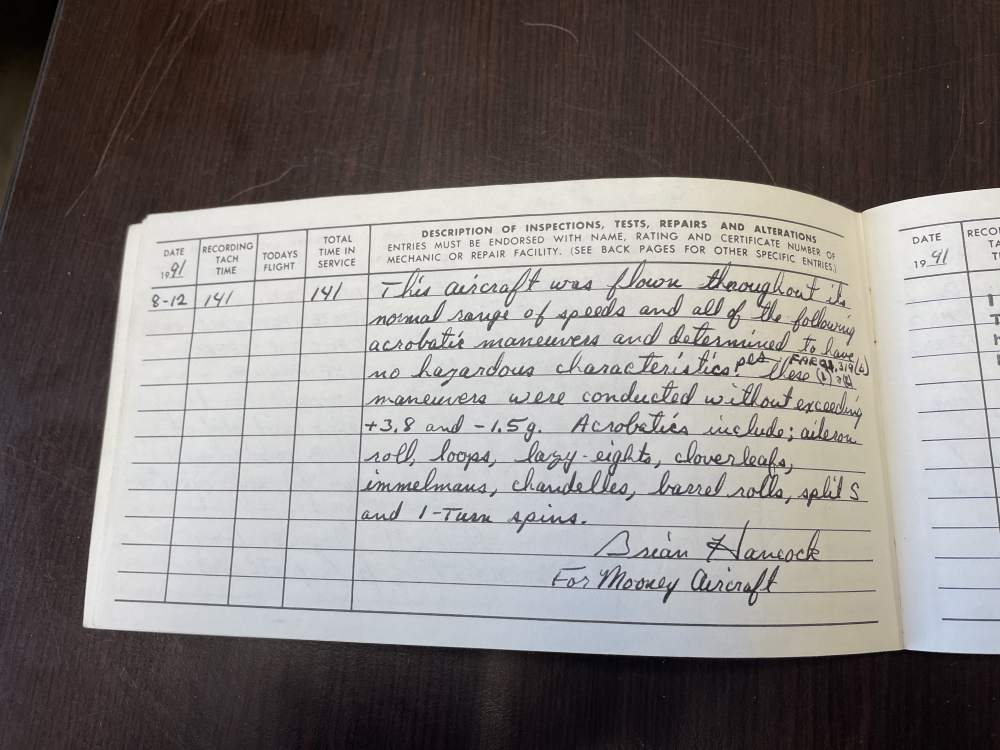 DATE
1991
RECORDING
TACH
TIME
TODAYS
FLIGHT
TOTAL
TIME IN
SERVICE
DESCRIPTION OF INSPECTIONS, TESTS, REPAIRS AND ALTERATIONS
ENTRIES MUST BE ENDORSED WITH NAME, RATING AND CERTIFICATE NUMBER OF
MECHANIC OR REPAIR FACILITY. (SEE BACK PAGES FOR OTHER SPECIFIC ENTRIES.)
8-12 141 141 This aircraft was flown throughout its
normal range of speeds and all of the following
acrobatic maneuvers and determined to have
no hazardous characteristics. per FAR 91.319(b) These
maneuvers were conducted without exceeding
+3.8 and -1.5g. Acrobatics include; aileron
roll, loops, lazy-eights, cloverleafs,
immelmans, chandelles, barrel rolls, split S
and 1-Turn spins.
Brian Hancock
For Mooney Aircraft
DATE
1991